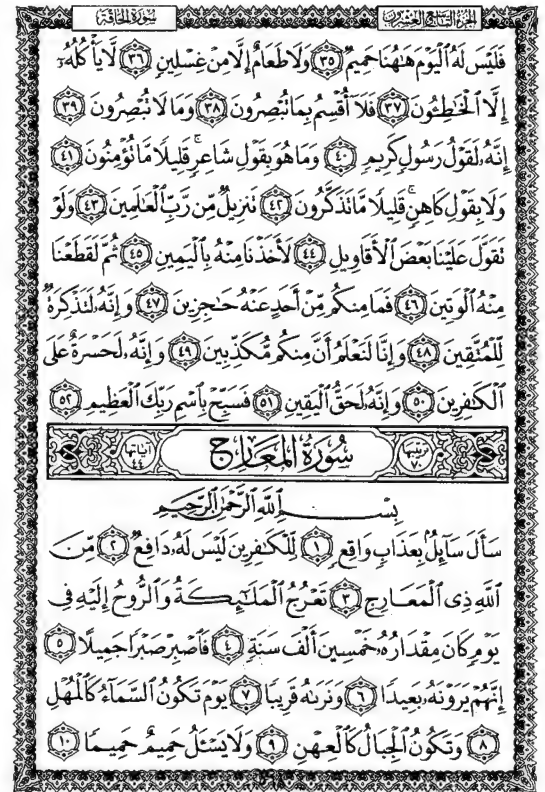 الجزء التاسع والعشرون سورة الحاقة
فَلَيْسَ لَهُ ٱلْيَوْمَ هَٰهُنَا حَمِيمٌ ٣٥ وَلَا طَعَامٌ إِلَّا مِنْ غِسْلِينٍ ٣٦ لَّا يَأْكُلُهُۥٓ
إِلَّا ٱلْخَٰطِـُٔونَ ٣٧ فَلَآ أُقْسِمُ بِمَا تُبْصِرُونَ ٣٨ وَمَا لَا تُبْصِرُونَ ٣٩
إِنَّهُۥ لَقَوْلُ رَسُولٍ كَرِيمٍ ٤٠ وَمَا هُوَ بِقَوْلِ شَاعِرٍ ۚ قَلِيلًا مَّا تُؤْمِنُونَ ٤١
وَلَا بِقَوْلِ كَاهِنٍ ۚ قَلِيلًا مَّا تَذَكَّرُونَ ٤٢ تَنزِيلٌ مِّن رَّبِّ ٱلْعَٰلَمِينَ ٤٣ وَلَوْ
تَقَوَّلَ عَلَيْنَا بَعْضَ ٱلْأَقَاوِيلِ ٤٤ لَأَخَذْنَا مِنْهُ بِٱلْيَمِينِ ٤٥ ثُمَّ لَقَطَعْنَا
مِنْهُ ٱلْوَتِينَ ٤٦ فَمَا مِنكُم مِّنْ أَحَدٍ عَنْهُ حَٰجِزِينَ ٤٧ وَإِنَّهُۥ لَتَذْكِرَةٌ
لِّلْمُتَّقِينَ ٤٨ وَإِنَّا لَنَعْلَمُ أَنَّ مِنكُم مُّكَذِّبِينَ ٤٩ وَإِنَّهُۥ لَحَسْرَةٌ عَلَى
ٱلْكَٰفِرِينَ ٥٠ وَإِنَّهُۥ لَحَقُّ ٱلْيَقِينِ ٥١ فَسَبِّحْ بِٱسْمِ رَبِّكَ ٱلْعَظِيمِ ٥٢
ترتيبها ٧٠ سُورَةُ المَعَارِجِ آياتها ٤٤
بِسْمِ ٱللَّهِ ٱلرَّحْمَٰنِ ٱلرَّحِيمِ
سَأَلَ سَآئِلٌۢ بِعَذَابٍ وَاقِعٍ ١ لِّلْكَٰفِرِينَ لَيْسَ لَهُۥ دَافِعٌ ٢ مِّنَ
ٱللَّهِ ذِى ٱلْمَعَارِجِ ٣ تَعْرُجُ ٱلْمَلَٰٓئِكَةُ وَٱلرُّوحُ إِلَيْهِ فِى
يَوْمٍ كَانَ مِقْدَارُهُۥ خَمْسِينَ أَلْفَ سَنَةٍ ٤ فَٱصْبِرْ صَبْرًا جَمِيلًا ٥
إِنَّهُمْ يَرَوْنَهُۥ بَعِيدًا ٦ وَنَرَىٰهُ قَرِيبًا ٧ يَوْمَ تَكُونُ ٱلسَّمَآءُ كَٱلْمُهْلِ
٨ وَتَكُونُ ٱلْجِبَالُ كَٱلْعِهْنِ ٩ وَلَا يَسْـَٔلُ حَمِيمٌ حَمِيمًا ١٠